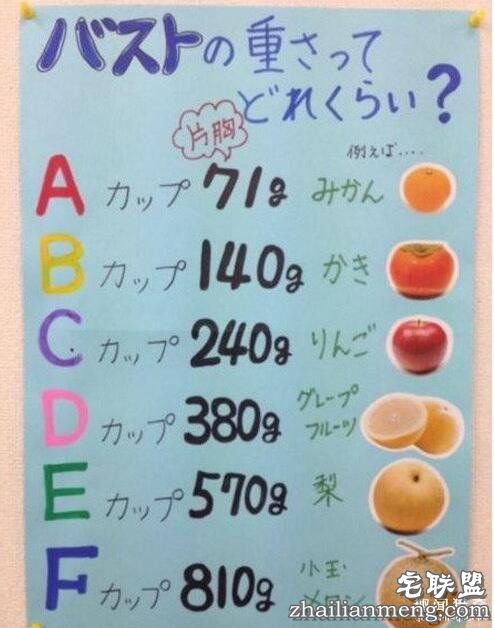 バストの重さって
どれくらい?
片胸
例えば....
A カップ 71g みかん
B カップ 140g かき
C カップ 240g りんご
D カップ 380g グレープ
フルーツ
E カップ 570g 梨
F カップ 810g 小玉
メロン
宅联盟
zhailianmeng.com